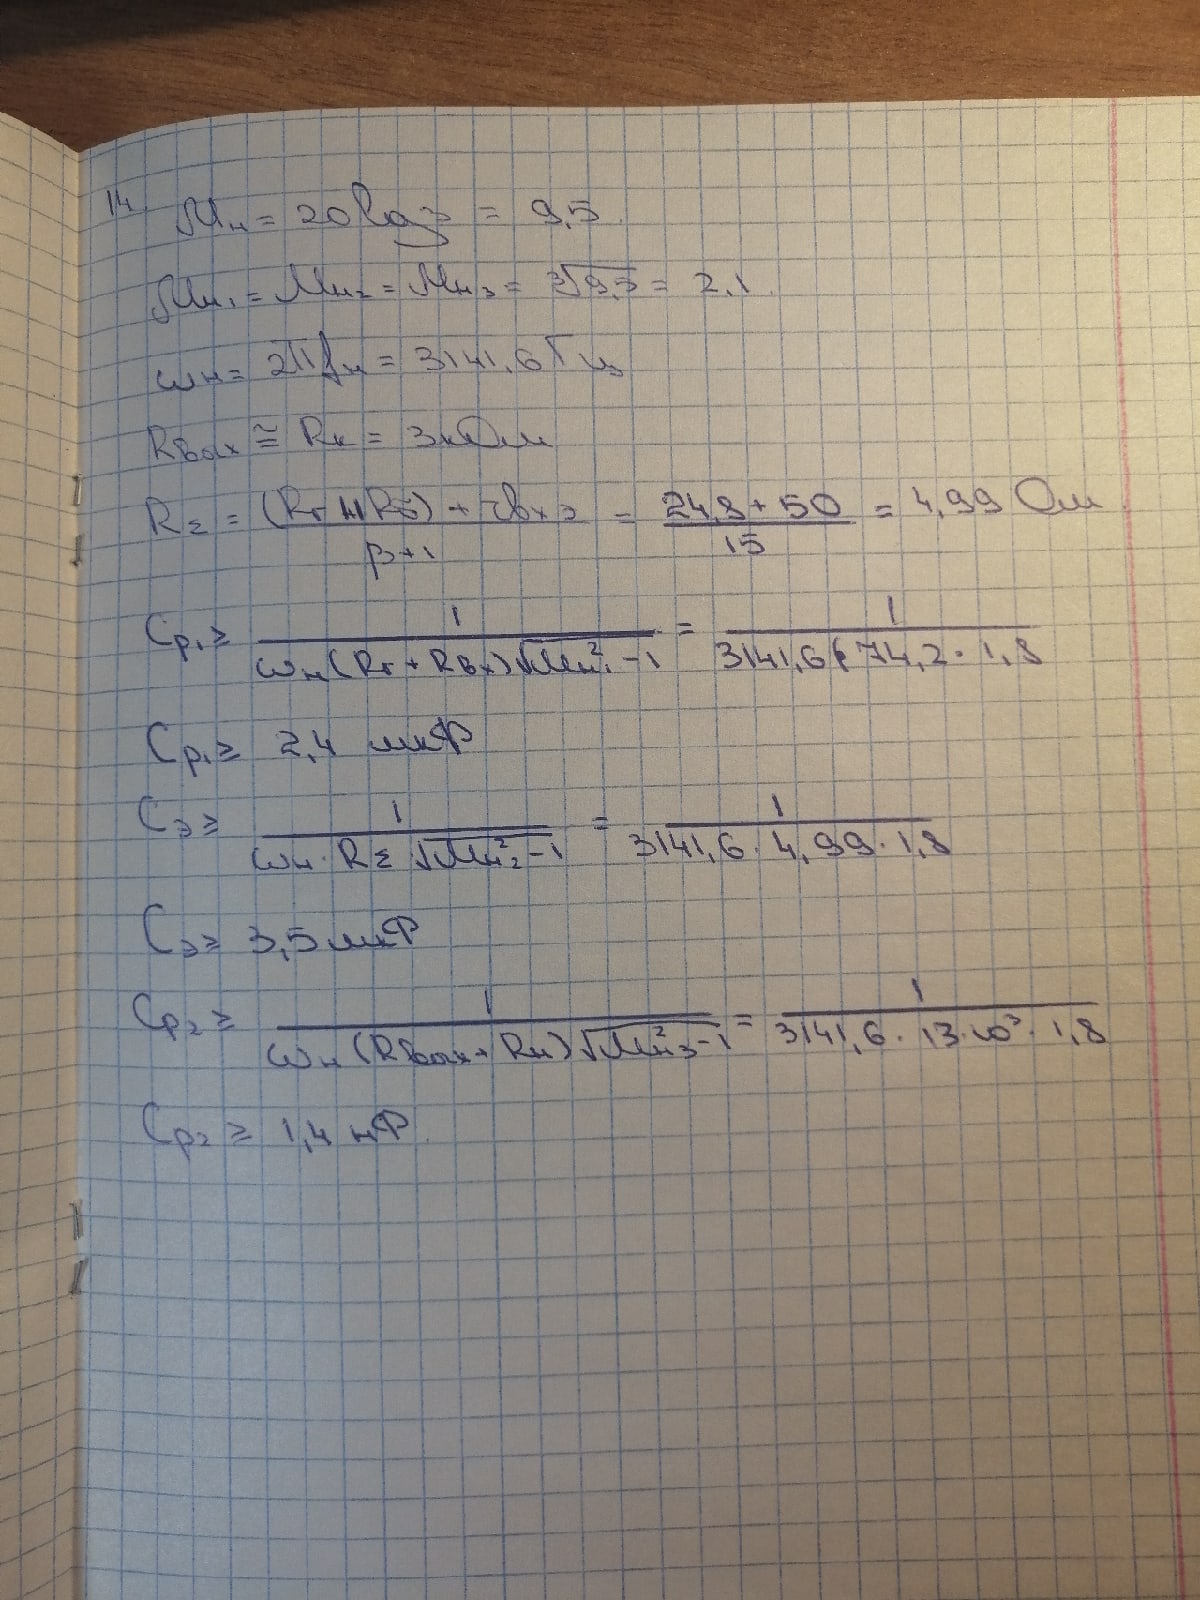 14.
Mн = 20lg3 = 9,5
Mн₁ = Mн₂ = Mн₃ = ∛9,5 = 2,1
ωн = 2πfн = 3141,6 Гц
Rвых ≅ Rк = 3кОм
RΣ = (Rг || Rб) + rвхэ / β+1 = 24,8 + 50 / 15 = 4,99 Ом
Cp₁ ≥ 1 / ωн (Rг + Rвх) √Mн₁² -1 = 1 / 3141,6 · 74,2 · 1,8
Cp₁ ≥ 2,4 мкФ
Cэ ≥ 1 / ωн · RΣ √Mн₂² -1 = 1 / 3141,6 · 4,99 · 1,8
Cэ ≥ 3,5 мкФ
Cp₂ ≥ 1 / ωн (Rвых + Rн) √Mн₃² -1 = 1 / 3141,6 · 13·10³ · 1,8
Cp₂ ≥ 1,4 нФ